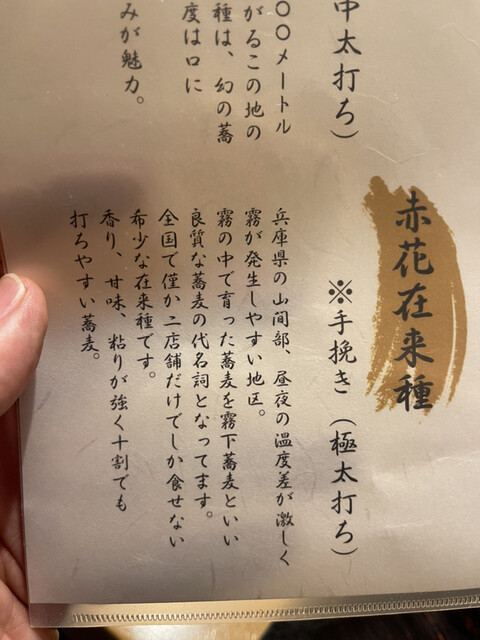 中太打ち）
〇〇メートル
がるこの地の
種は、幻の蕎
度は口に
みが魅力。
赤花在来種
※手挽き（極太打ち）
兵庫県の山間部、昼夜の温度差が激しく
霧が発生しやすい地区。
霧の中で育った蕎麦を霧下蕎麦といい
良質な蕎麦の代名詞となってます。
全国で僅か二店舗だけでしか食せない
希少な在来種です。
香り、甘味、粘りが強く十割でも
打ちやすい蕎麦。